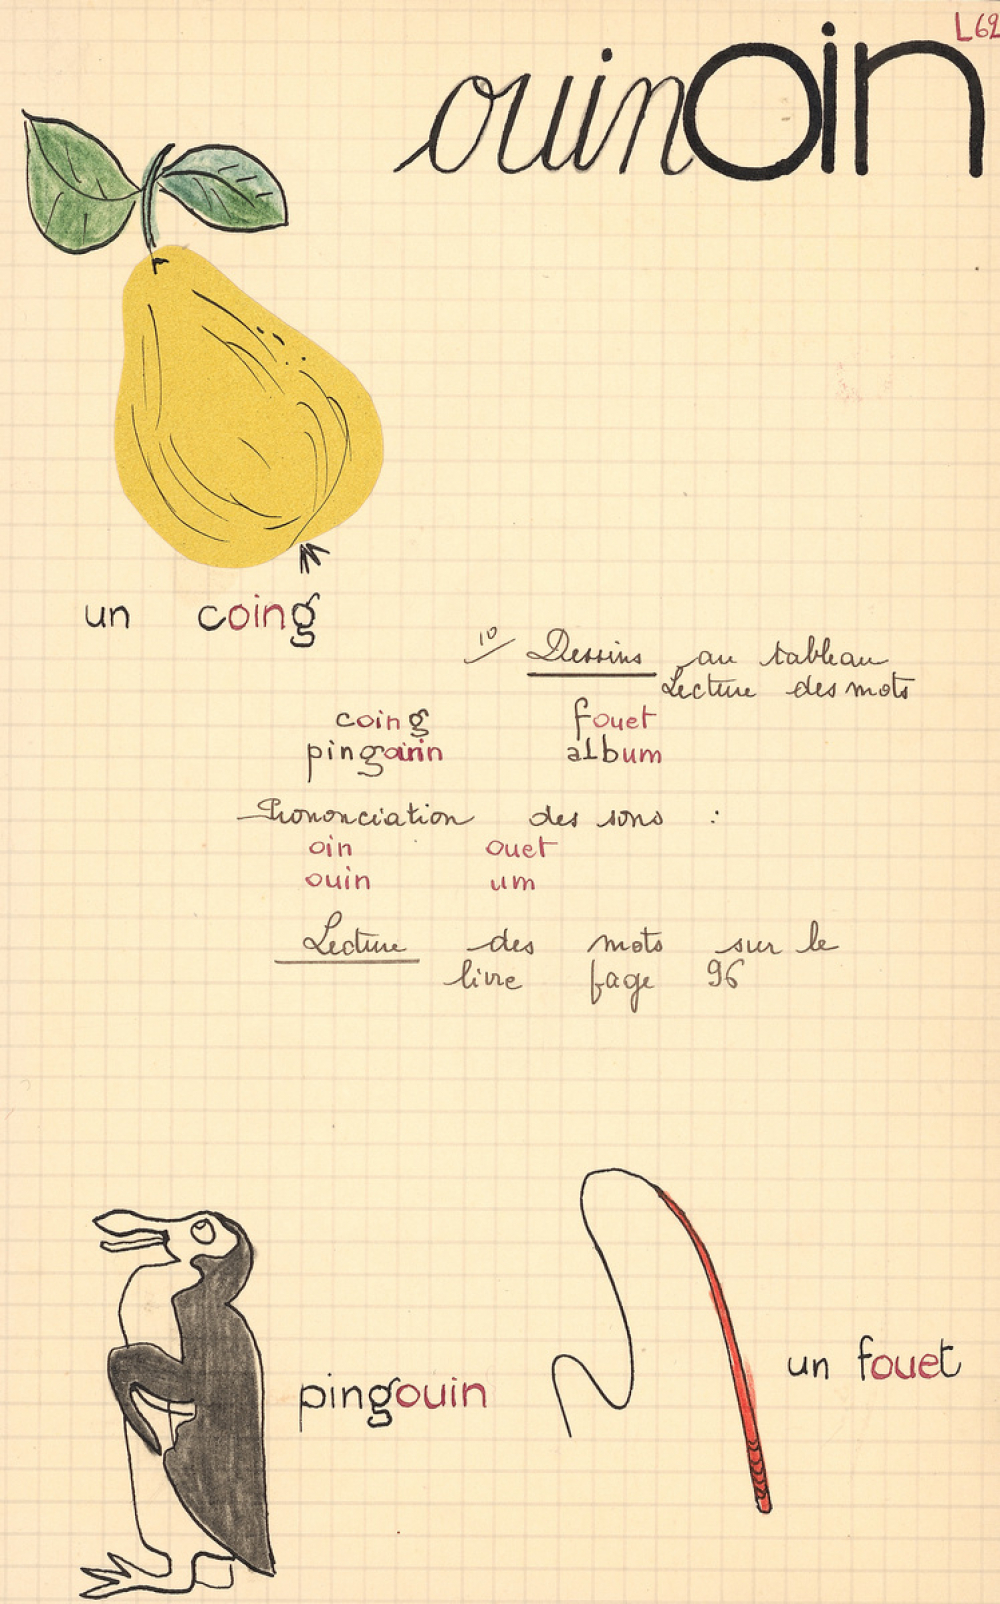 L62
ouin oin
un coing
1º/ Dessins au tableau
Lecture des mots
coing fouet
pingouin album
Prononciation des sons :
oin ouet
ouin um
Lecture des mots sur le
livre page 96
pingouin
un fouet